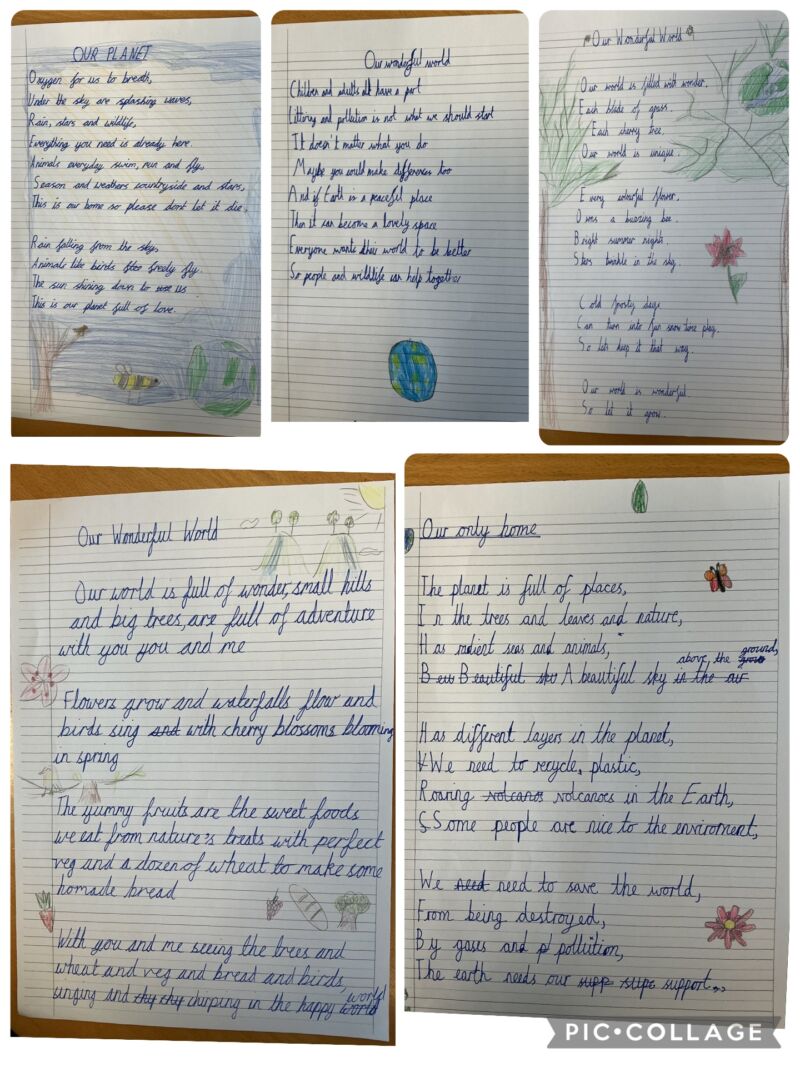 OUR PLANET
Oxygen for us to breath,
Under the sky are splashing waves,
Rain, stars and wildlife,
Everything you need is already here.
Animals everyday swim, run and fly,
Season and weathers countryside and stars,
This is our home so please dont let it die.
Rain falling from the sky,
Animals like birds freely fly.
The sun shining down to us
This is our planet full of love.
Our wonderful world
Children and adults all have a part
Littiring and pollution is not what we should start
It doesn't matter what you do
Maybe you could make differences too
And if Earth is a peaceful place
Then it can become a lovely space
Everyone wants their world to be better
So people and wildlife can help together
Our Wonderful World
Our world is filled with wonder.
Each blade of grass.
Each cherry tree.
Our world is unique.
Every colourful flower.
Owns a buzzing bee.
Bright summer nights.
Stars twinkle in the sky.
Cold frosty days
Can turn into fun snow time play.
So lets keep it that way.
Our world is wonderful.
So let it grow.
Our Wonderful World
Our world is full of wonder, small hills
and big trees, are full of adventure
with you you and me
Flowers grow and waterfalls flow and
birds sing and with cherry blossoms blooming
in spring
The yummy fruits are the sweet foods
we eat from nature's treats with perfect
veg and a dozen of wheat to make some
homade bread
With you and me seeing the trees and
wheat and veg and bread and birds,
singing and chy chy chirping in the happy world world
Our only home
The planet is full of places,
In the trees and leaves and nature,
Has radient seas and animals,
B eu Beautiful sky A beautiful sky in the air above the ground,
Has different layers in the planet,
We need to recycle, plastic,
Roaring volcanos volcanoes in the Earth,
S Some people are nice to the enviroment,
We need need to save the world,
From being destroyed,
By gases and p pollution,
The earth needs our supp supe support.
PIC•COLLAGE